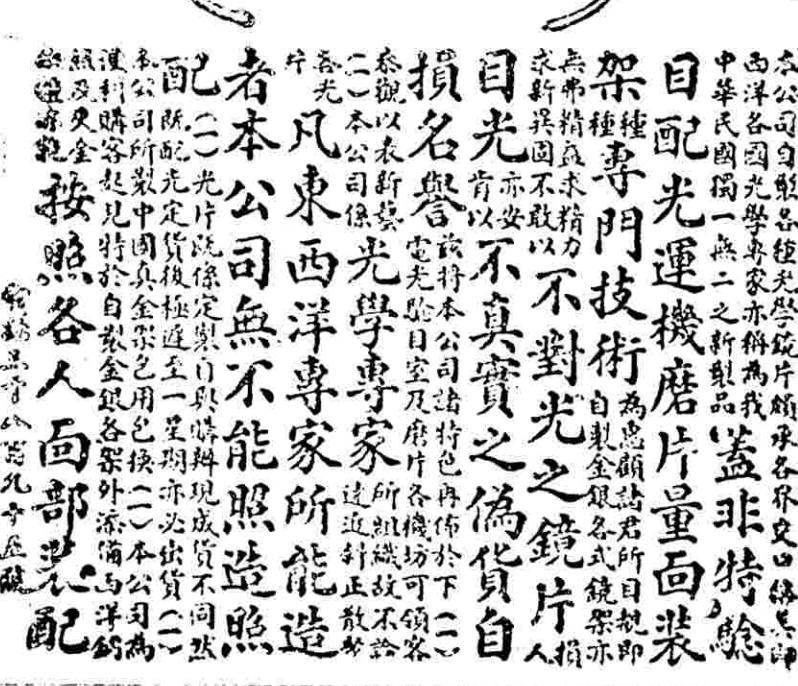 本公司自製各種光學鏡片頗承各界交口稱美即
西洋各國光學專家亦稱為我
中華民國獨一無二之新製品蓋非特驗
目配光運機磨片量面裝
架種種專門技術為惠顧諸君所目覩即
自製金銀各式鏡架亦
無弗精益求精力
求新異固不敢以不對光之鏡片損人
目光亦安肯以不真實之偽貨自
損名譽茲將本公司諸特色再佈於下(一)
電光驗目室及磨片各機坊可領客
參觀以表新藝
(一)本公司係光學專家所組織故不論
遠近斜正散光
各光片凡東西洋專家所能造
者本公司無不能照造照
配(一)光片既係定製自與購辦現成貨不同然
既配光定貨後極遲至一星期亦必出貨(一)
本公司所製中國真金架包用包換(一)本公司為
購客起見特於自製金銀各架外添備西洋
及更金
按照各人面部裝配